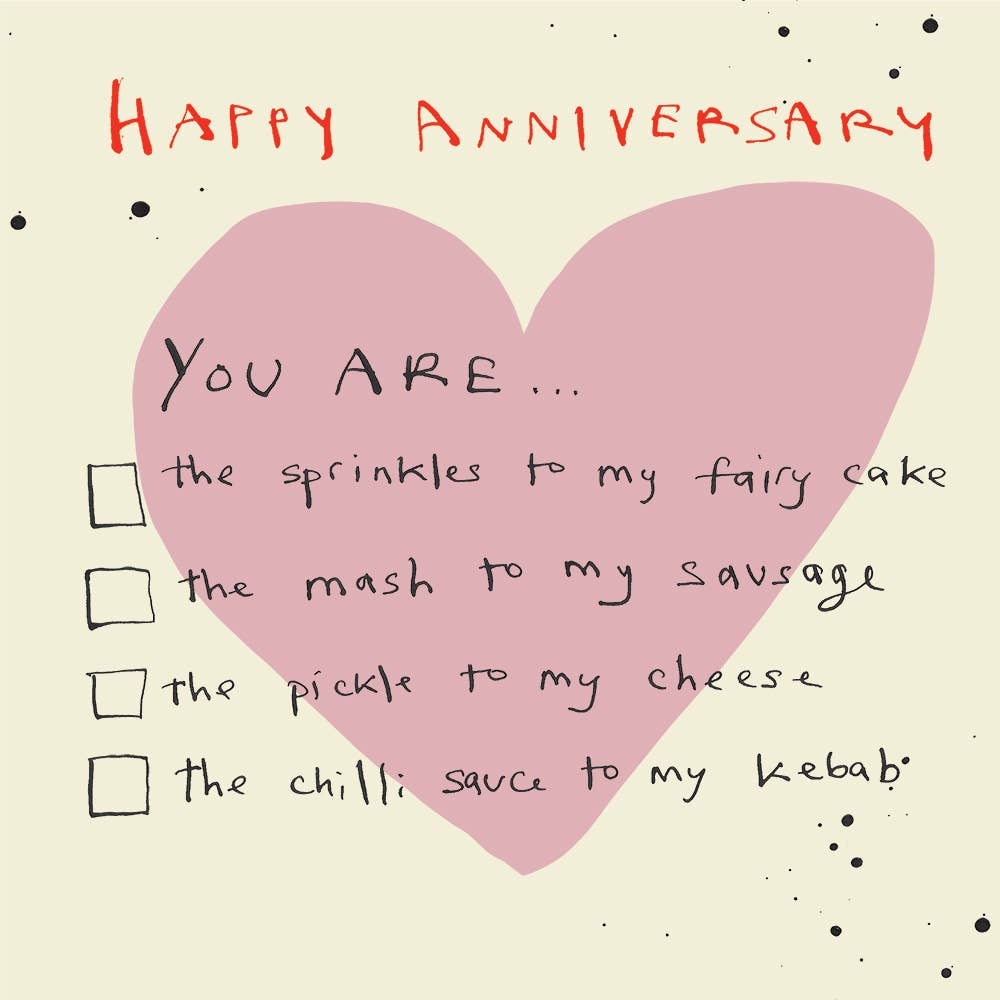 HAPPY ANNIVERSARY
YOU ARE...
the sprinkles to my fairy cake
the mash to my sausage
the pickle to my cheese
the chilli sauce to my kebab